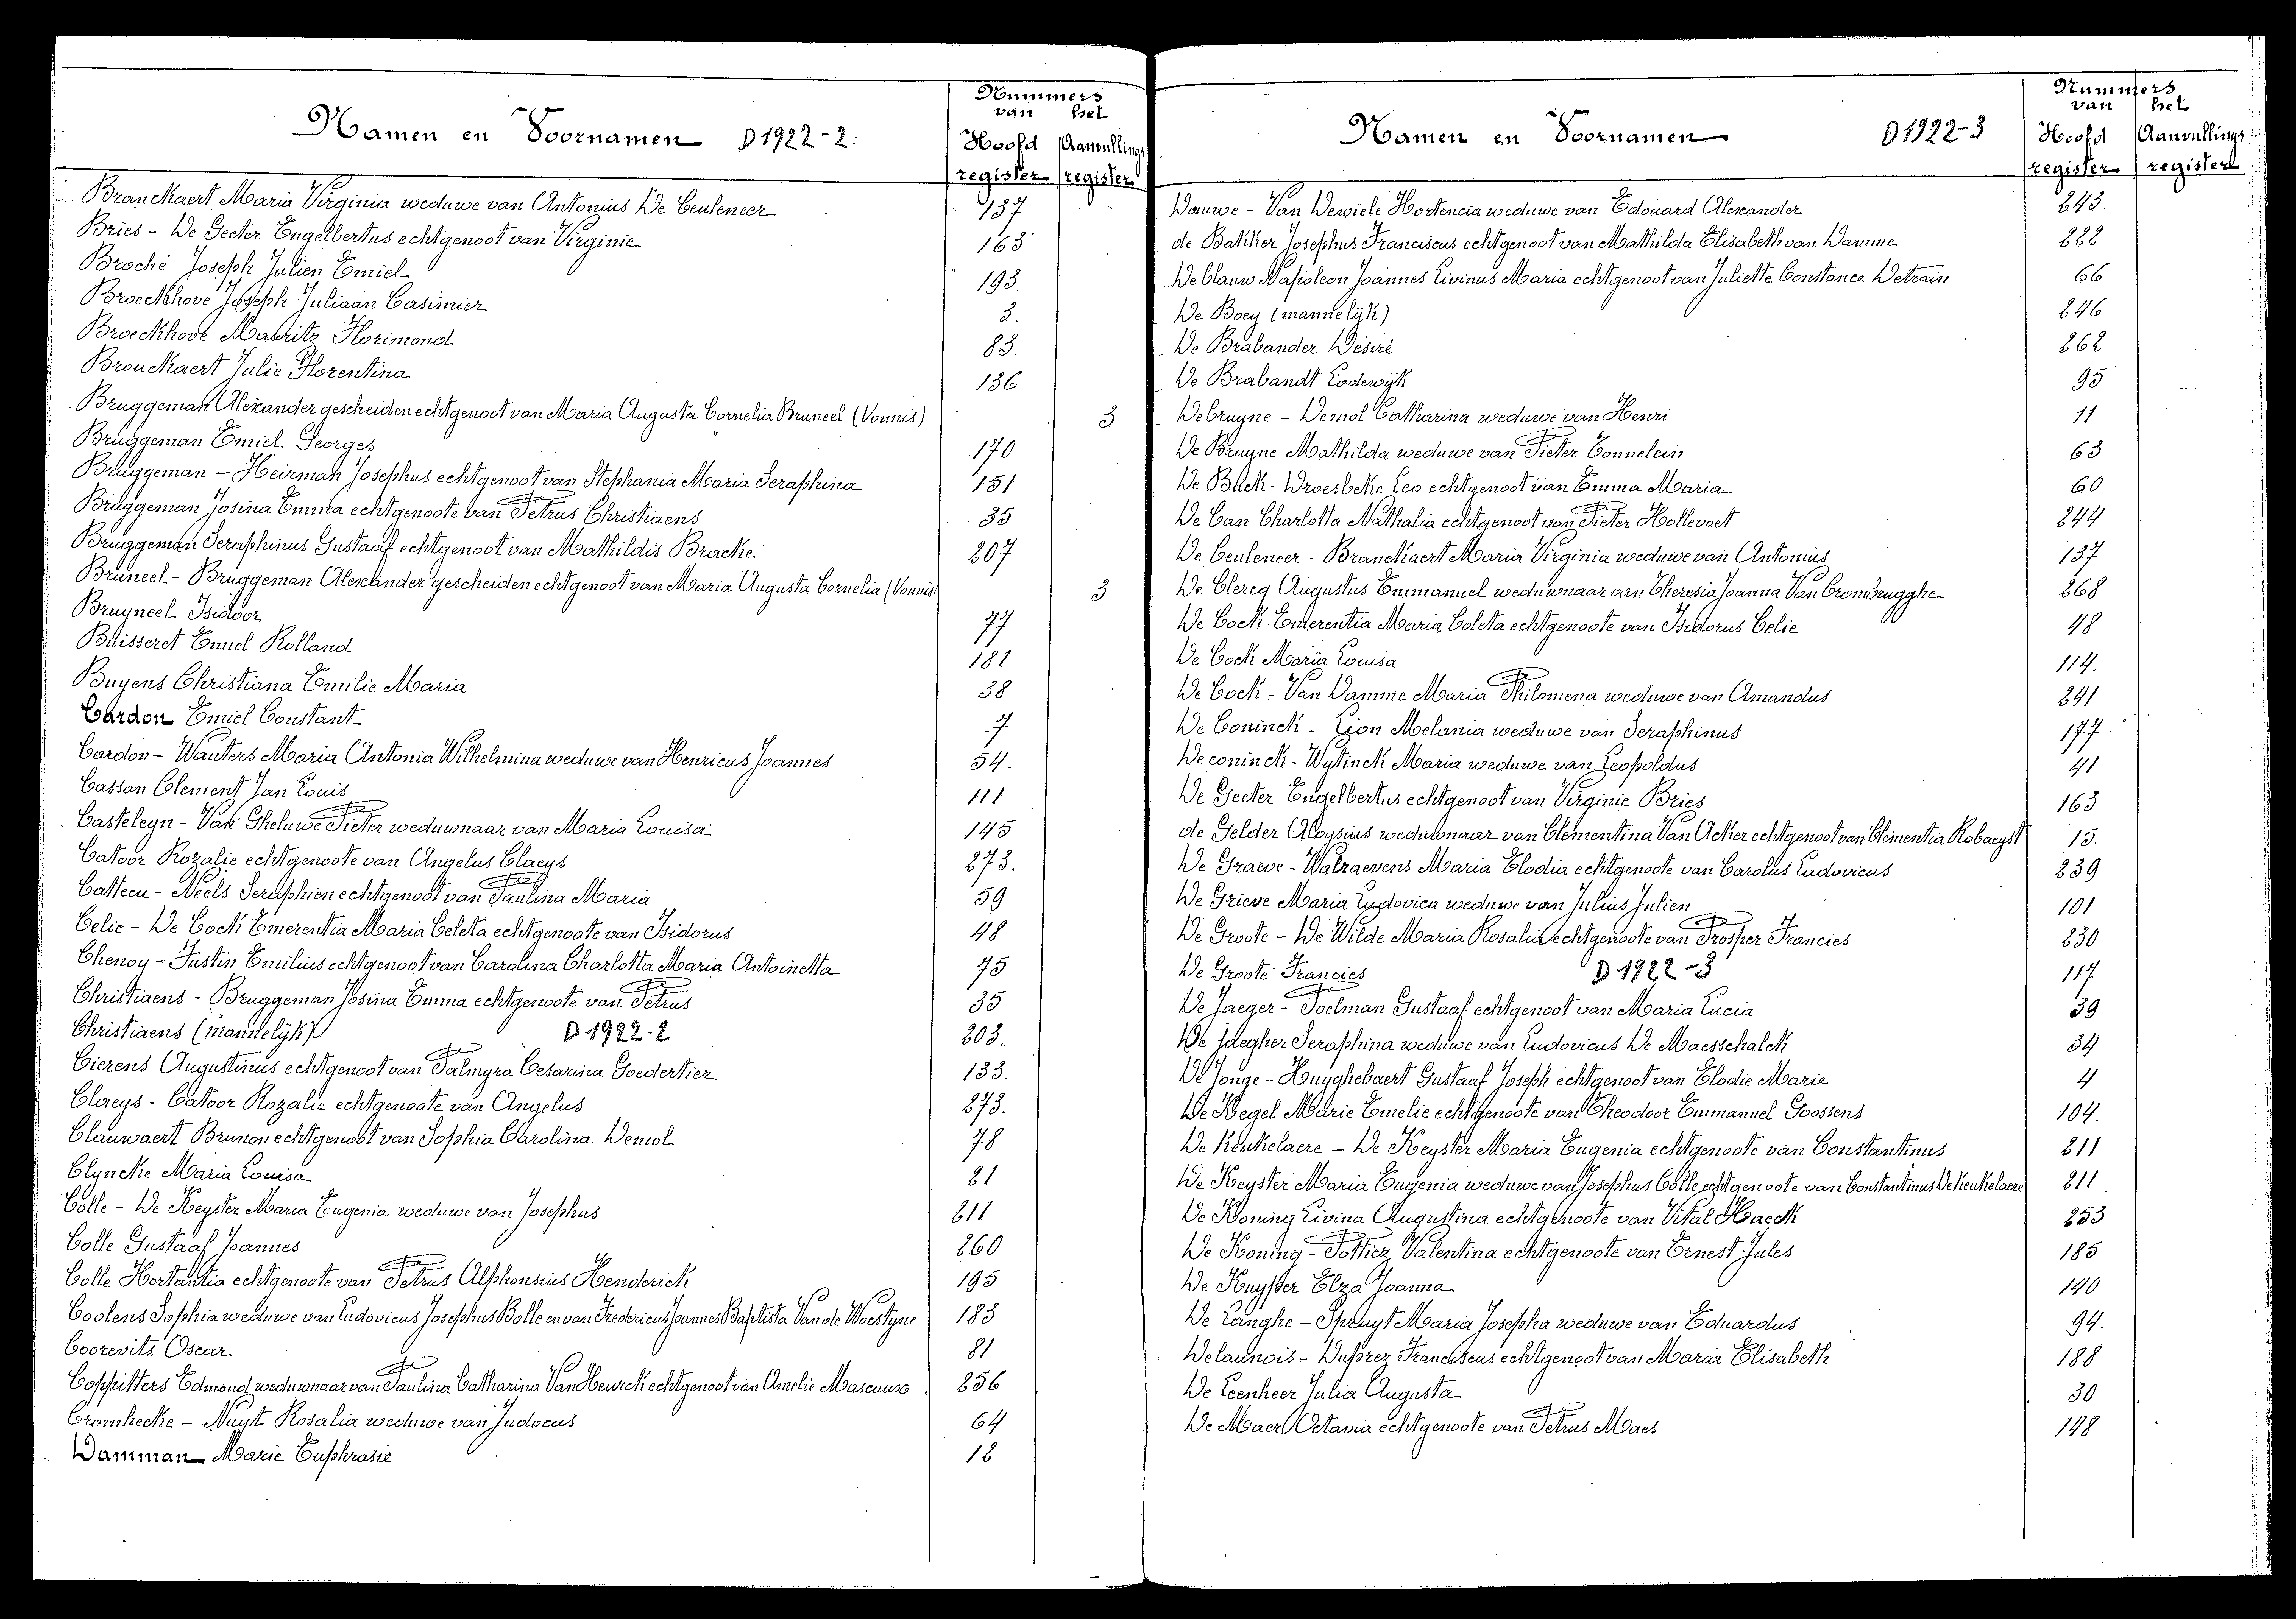 Namen en Voornamen D 1922-2.
Nummers
van het
Hoofd Aanvullings
register register
Branckaert Maria Virginia weduwe van Antonius De Ceuleneer 137
Bries - De Geeter Engelbertus echtgenoot van Virginie 163
Broché Joseph Julien Emiel 193.
Broeckhove Joseph Juliaan Casimier 3.
Broeckhove Mauritz Florimond 83.
Brouckaert Julie Florentina 136
Bruggeman Alexander gescheiden echtgenoot van Maria Augusta Cornelia Bruneel (Vonnis) 3
Bruggeman Emiel Georges 170
Bruggeman - Heirman Josephus echtgenoot van Stephania Maria Seraphina 151
Bruggeman Josina Emma echtgenoote van Petrus Christiaens 35
Bruggeman Seraphinus Gustaaf echtgenoot van Mathildis Bracke 207
Bruneel - Bruggeman Alexander gescheiden echtgenoot van Maria Augusta Cornelia (Vonnis) 3
Bruyneel Isidoor 77
Buisseret Emiel Rolland 181
Buyens Christiana Emilie Maria 38
Cardon Emiel Constant 7
Cardon - Wauters Maria Antonia Wilhelmina weduwe van Henricus Joannes 54.
Cassan Clement Jan Louis 111
Casteleyn - Van Gheluwe Pieter weduwnaar van Maria Louisa 145
Catoor Rozalie echtgenoote van Angelus Claeys 273.
Catteeu - Neels Seraphien echtgenoot van Paulina Maria 59
Celie - De Cock Emerentia Maria Coleta echtgenoote van Isidorus 48
Chenoy - Justin Emilius echtgenoot van Carolina Charlotta Maria Antoinetta 75
Christiaens - Bruggeman Josina Emma echtgenoote van Petrus 35
Christiaens (mannelijk) D 1922-2 203.
Cierens Augustinus echtgenoot van Palmyra Cesarina Goedertier 133.
Claeys - Catoor Rozalie echtgenoote van Angelus 273.
Clauwaert Brunon echtgenoot van Sophia Carolina Demol 78
Clyncke Maria Louisa 21
Colle - De Keyster Maria Eugenia weduwe van Josephus 211
Colle Gustaaf Joannes 260
Colle Hortantia echtgenoote van Petrus Alphonsius Henderick 195
Coolens Sophia weduwe van Ludovicus Josephus Bolle en van Fredericus Joannes Baptista Van de Woestyne 183
Coorevits Oscar 81
Coppitters Edmond weduwnaar van Paulina Catharina Van Heurck echtgenoot van Amelie Mascauso 256
Cromhecke - Nuyt Rosalia weduwe van Judocus 64
Damman Marie Euphrasie 12
Namen en Voornamen D 1922-3
Nummers
van het
Hoofd Aanvullings
register register
Dauwe - Van Dewiele Hortencia weduwe van Edouard Alexander 243.
de Bakker Josephus Franciscus echtgenoot van Mathilda Elisabeth van Damme 222
De blauw Napoleon Joannes Livinus Maria echtgenoot van Juliette Constance Detrain 66
De Boey (mannelijk) 246
De Brabander Désiré 262
De Brabandt Lodewijk 95
Debruyne - Demol Catharina weduwe van Henri 11
De Bruyne Mathilda weduwe van Pieter Tonnelein 63
De Buck - Droesbeke Leo echtgenoot van Emma Maria 60
De Can Charlotta Nathalia echtgenoot van Pieter Hollevoet 244
De Ceuleneer - Branckaert Maria Virginia weduwe van Antonius 137
De Clercq Augustus Emmanuel weduwnaar van Theresia Joanna Van Crombrugghe 268
De Cock Emerentia Maria Coleta echtgenoote van Isidorus Celie 48
De Cock Maria Louisa 114.
De Cock - Van Damme Maria Philomena weduwe van Amandus 241
De Coninck - Lion Melania weduwe van Seraphinus 177
Deconinck - Wytinck Maria weduwe van Leopoldus 41
De Geeter Engelbertus echtgenoot van Virginie Bries 163
de Gelder Aloysius weduwnaar van Clementina Van Acker echtgenoot van Clementia Robaeyst 15.
De Graeve - Walraevens Maria Elodia echtgenoote van Carolus Ludovicus 239
De Grieve Maria Ludovica weduwe van Julius Julien 101
De Groote - De Wilde Maria Rosalia echtgenoote van Prosper Francies 230
De Groote Francies D 1922-3 117
De Jaeger - Poelman Gustaaf echtgenoot van Maria Lucia 39
De Jaegher Seraphina weduwe van Ludovicus De Maesschalck 34
De Jonge - Huyghebaert Gustaaf Joseph echtgenoot van Elodie Marie 4
De Kegel Marie Emelie echtgenoote van Theodoor Emmanuel Goossens 104.
De Keukelaere - De Keyster Maria Eugenia echtgenoote van Constantinus 211
De Keyster Maria Eugenia weduwe van Josephus Colle echtgenoote van Constantinus De Keukelaere 211
De Koning Livina Augustina echtgenoote van Vital Haeck 253
De Koning - Pottiez Valentina echtgenoote van Ernest Jules 185
De Kuyster Elza Joanna 140
De Langhe - Spruyt Maria Josepha weduwe van Eduardus 94.
Delaunois - Duprez Franciscus echtgenoot van Maria Elisabeth 188
De Leenheer Julia Augusta 30
De Maer Octavia echtgenoote van Petrus Maes 148